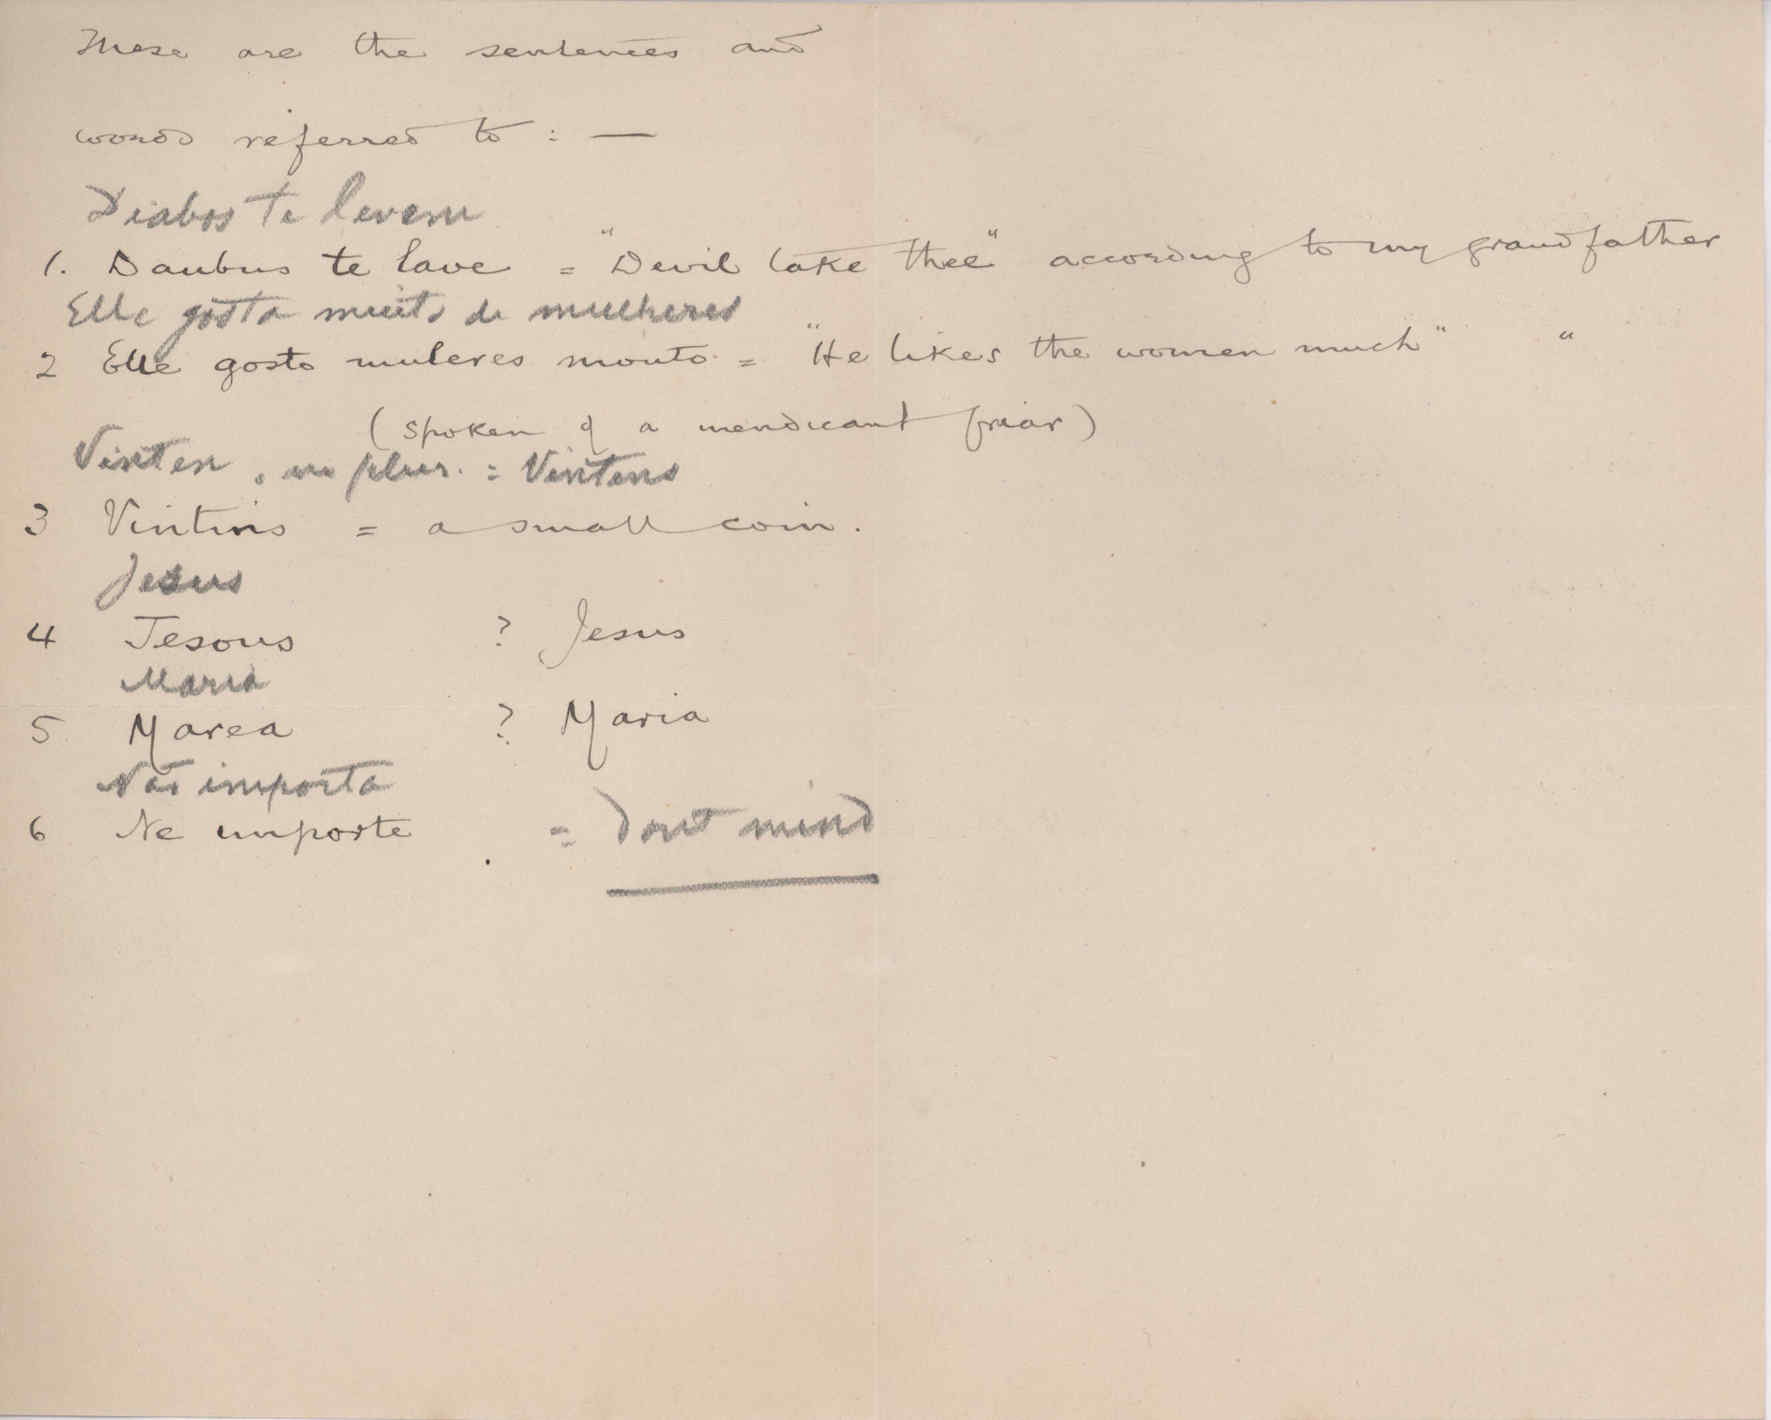 These are the sentences and
words referred to : —
Diabos te levem
1. Daubus te lave = "Devil take thee" according to my grandfather
Elle gosta muito de mulheres
2 Elle gosto muleres mouto = "He likes the women much" "
(spoken of a mendicant friar)
Vinten, in plur. = Vintens
3 Vintins = a small coin.
Jesus
4 Jesous ? Jesus
Maria
5 Marea ? Maria
Não importa
6 Ne importe = Dont mind